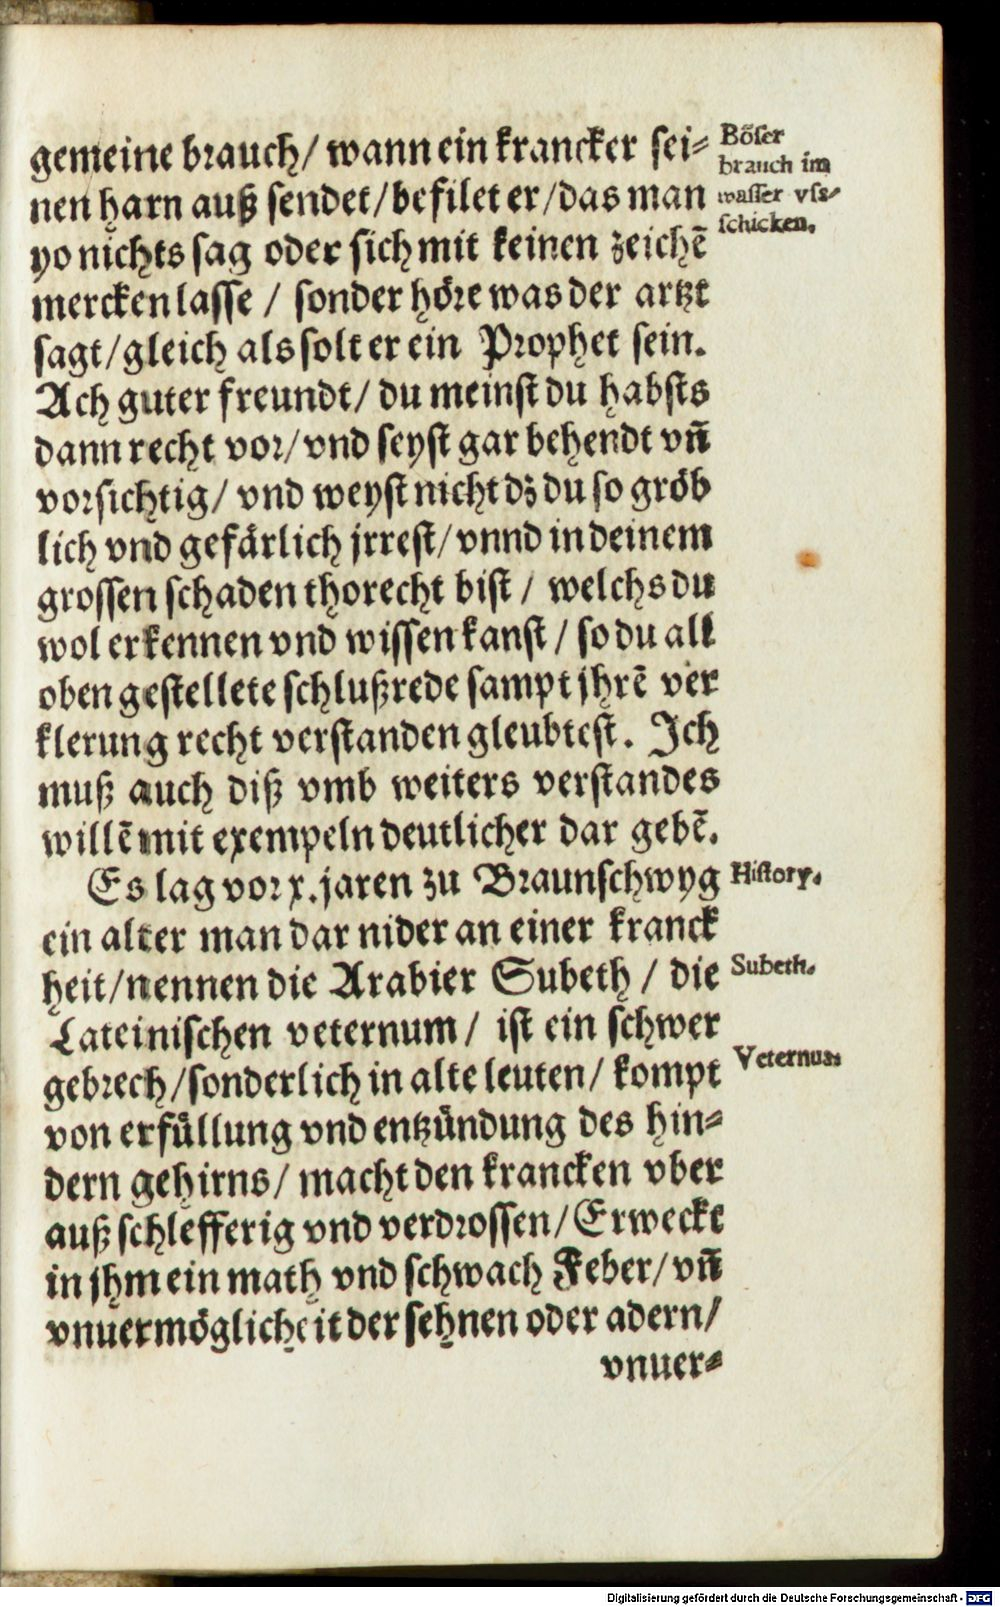 gemeine brauch/ wann ein krancker sei⸗
nen harn auß sendet/ befilet er/ das man
yo nichts sag oder sich mit keinen zeichē
mercken lasse / sonder höre was der artzt
sagt/ gleich als solt er ein Prophet sein.
Ach guter freundt/ du meinst du habsts
dann recht vor/ vnd seyst gar behendt vn̄
vorsichtig/ vnd weyst nicht dz du so gröb
lich vnd gefärlich jrrest/ vnnd in deinem
grossen schaden thorecht bist / welchs du
wol erkennen vnd wissen kanst / so du all
oben gestellete schlußrede sampt jhrē ver
klerung recht verstanden gleubtest. Ich
muß auch diß vmb weiters verstandes
willē mit exempeln deutlicher dar gebē.
Es lag vor x. jaren zu Braunschwyg
ein alter man dar nider an einer kranck
heit/ nennen die Arabier Subeth / die
Lateinischen veternum / ist ein schwer
gebrech/ sonderlich in alte leuten/ kompt
von erfüllung vnd entzündung des hin⸗
dern gehirns/ macht den krancken vber
auß schlefferig vnd verdrossen/ Erweckt
in jhm ein math vnd schwach Feber/ vn̄
vnuermöglicheit der sehnen oder adern/
vnuer⸗
Böser
brauch im
wasser vss⸗
schicken.
History.
Subeth.
Veternus.
Digitalisierung gefördert durch die Deutsche Forschungsgemeinschaft - DFG